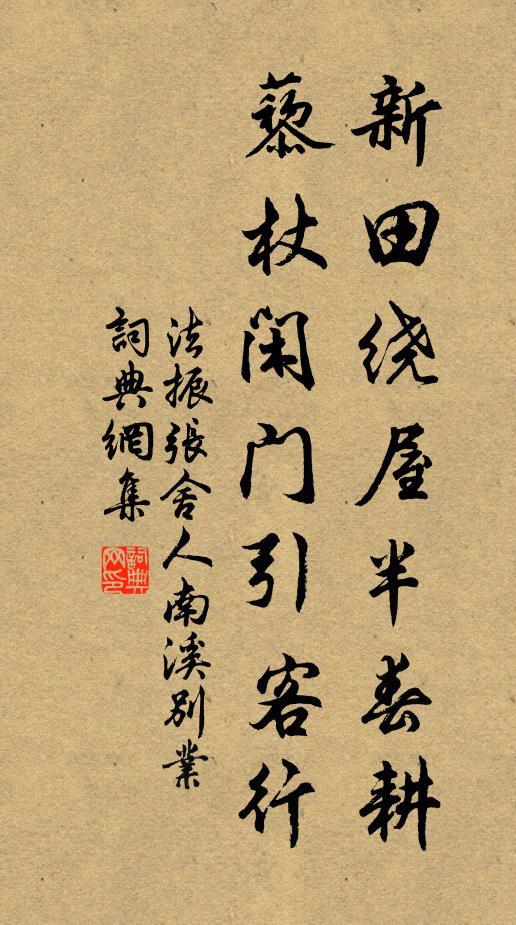 新田绕屋半春耕
藜杖闲门引客行
法振張舍人南溪别業
詞典網集
詞典网印